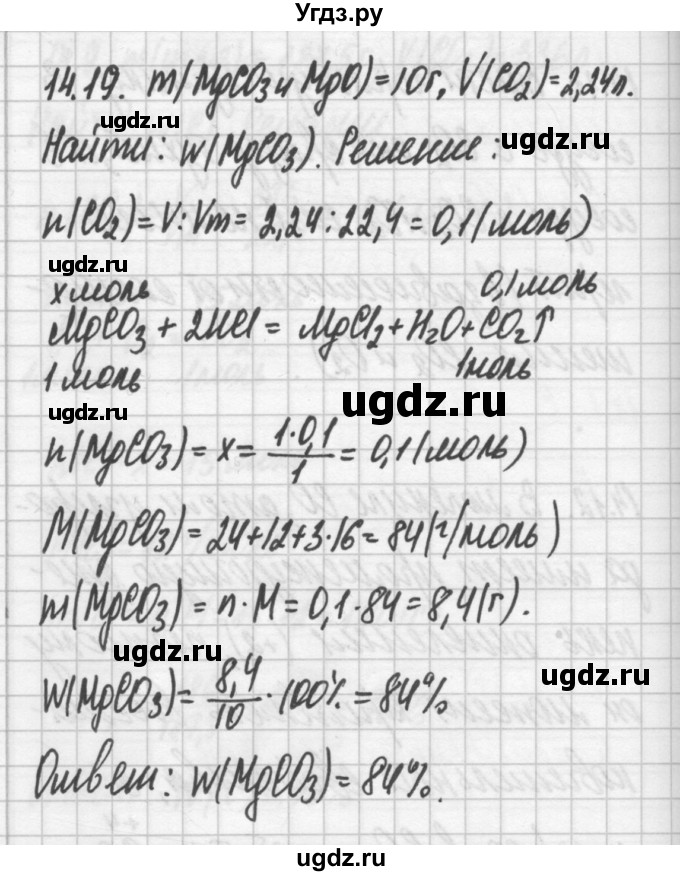 Угдз.ру
14.19. m(MgCO₃ и MgO)=10г, V(CO₂)=2,24л.
ugdz.ru ugdz.ru
Найти: w(MgCO₃). Решение:
n(CO₂)=V:Vm= 2,24:22,4=0,1(моль)
ugdz.ru
x моль 0,1 моль
MgCO₃ + 2HCl = MgCl₂+H₂O+CO₂↑
1 моль 1 моль
ugdz.ru ugdz.ru
n(MgCO₃)=x= 1·0,1/1 = 0,1(моль)
M(MgCO₃)=24+12+3·16=84(г/моль)
m(MgCO₃)=n·M=0,1·84=8,4(г).
ugdz.ru ugdz.ru
w(MgCO₃)= 8,4/10 ·100%=84%
Ответ: w(MgCO₃)=84%.
ugdz.ru